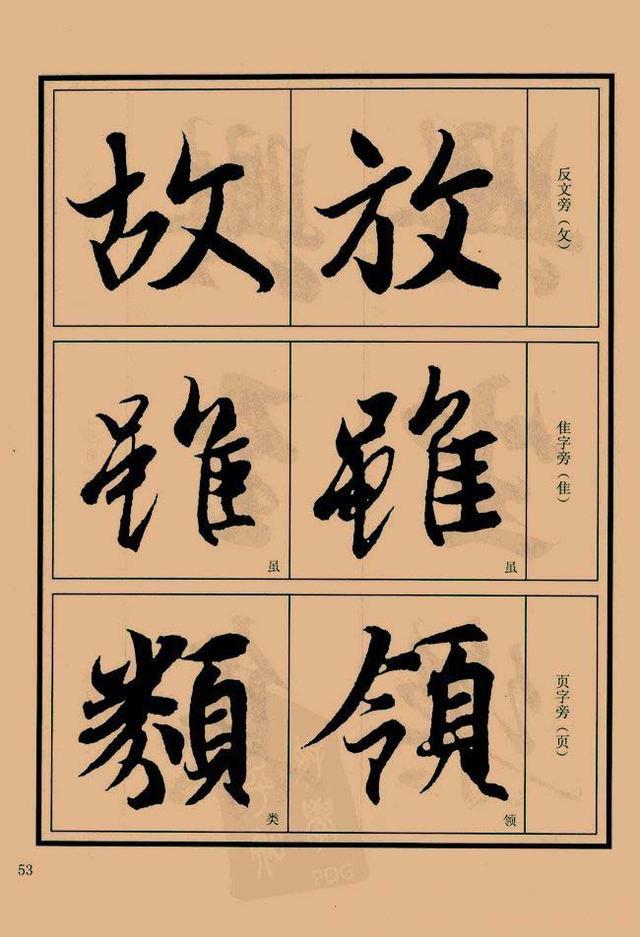 反文旁（攵）
放
故
隹字旁（隹）
雖
虽
雖
虽
页字旁（页）
領
领
類
类
53
PDG